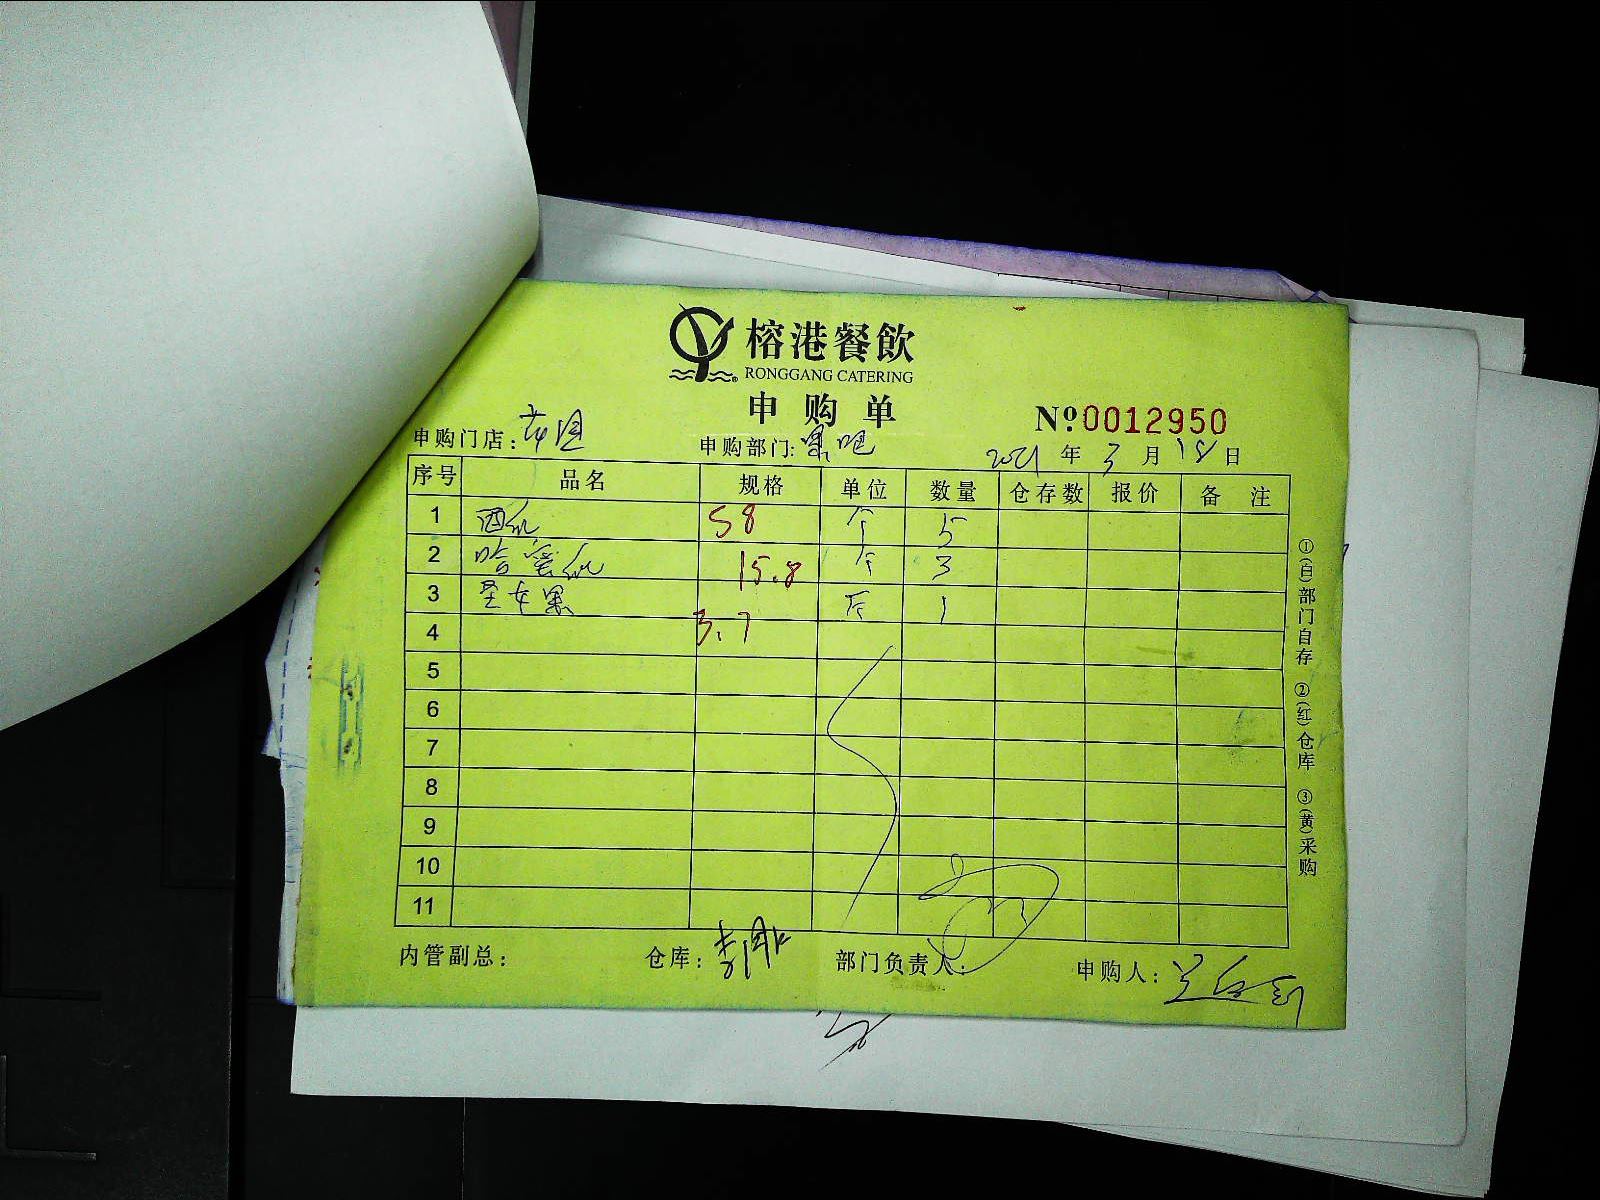 榕港餐飲
RONGGANG CATERING
申购单
№0012950
申购门店: 申购部门: 果吧 2021年3月18日
序号 品名 规格 单位 数量 仓存数 报价 备注
1 西瓜 58 个 5
2 哈蜜瓜 15.8 个 3
3 圣女果 3.7 斤 1
4
5
6
7
8
9
10
11
内管副总: 仓库: 部门负责人: 申购人:
①(白)部门自存 ②(红)仓库 ③(黄)采购